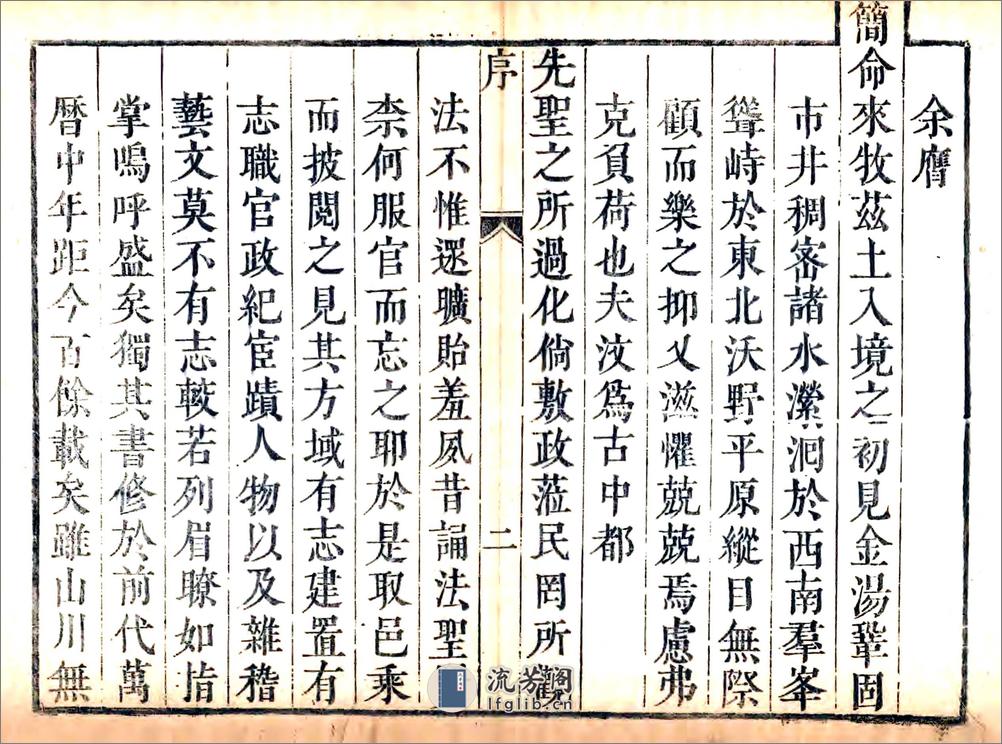 余膺
簡命來牧茲土入境之初見金湯鞏固
市井稠密諸水瀠洄於西南羣峯
聳峙於東北沃野平原縱目無際
顧而樂之抑又滋懼兢兢焉慮弗
克負荷也夫汶爲古中都
先聖之所過化倘敷政蒞民罔所觀
序 二
法不惟曠貽羞夙昔誦法聖
柰何服官而忘之耶於是取邑乘
而披閱之見其方域有志建置有
志職官政紀宦蹟人物以及雜稽
藝文莫不有志較若列眉瞭如指
掌嗚呼盛矣獨其書修於前代萬
曆中年距今百餘載矣雖山川無
流芳閣
lfglib.cn